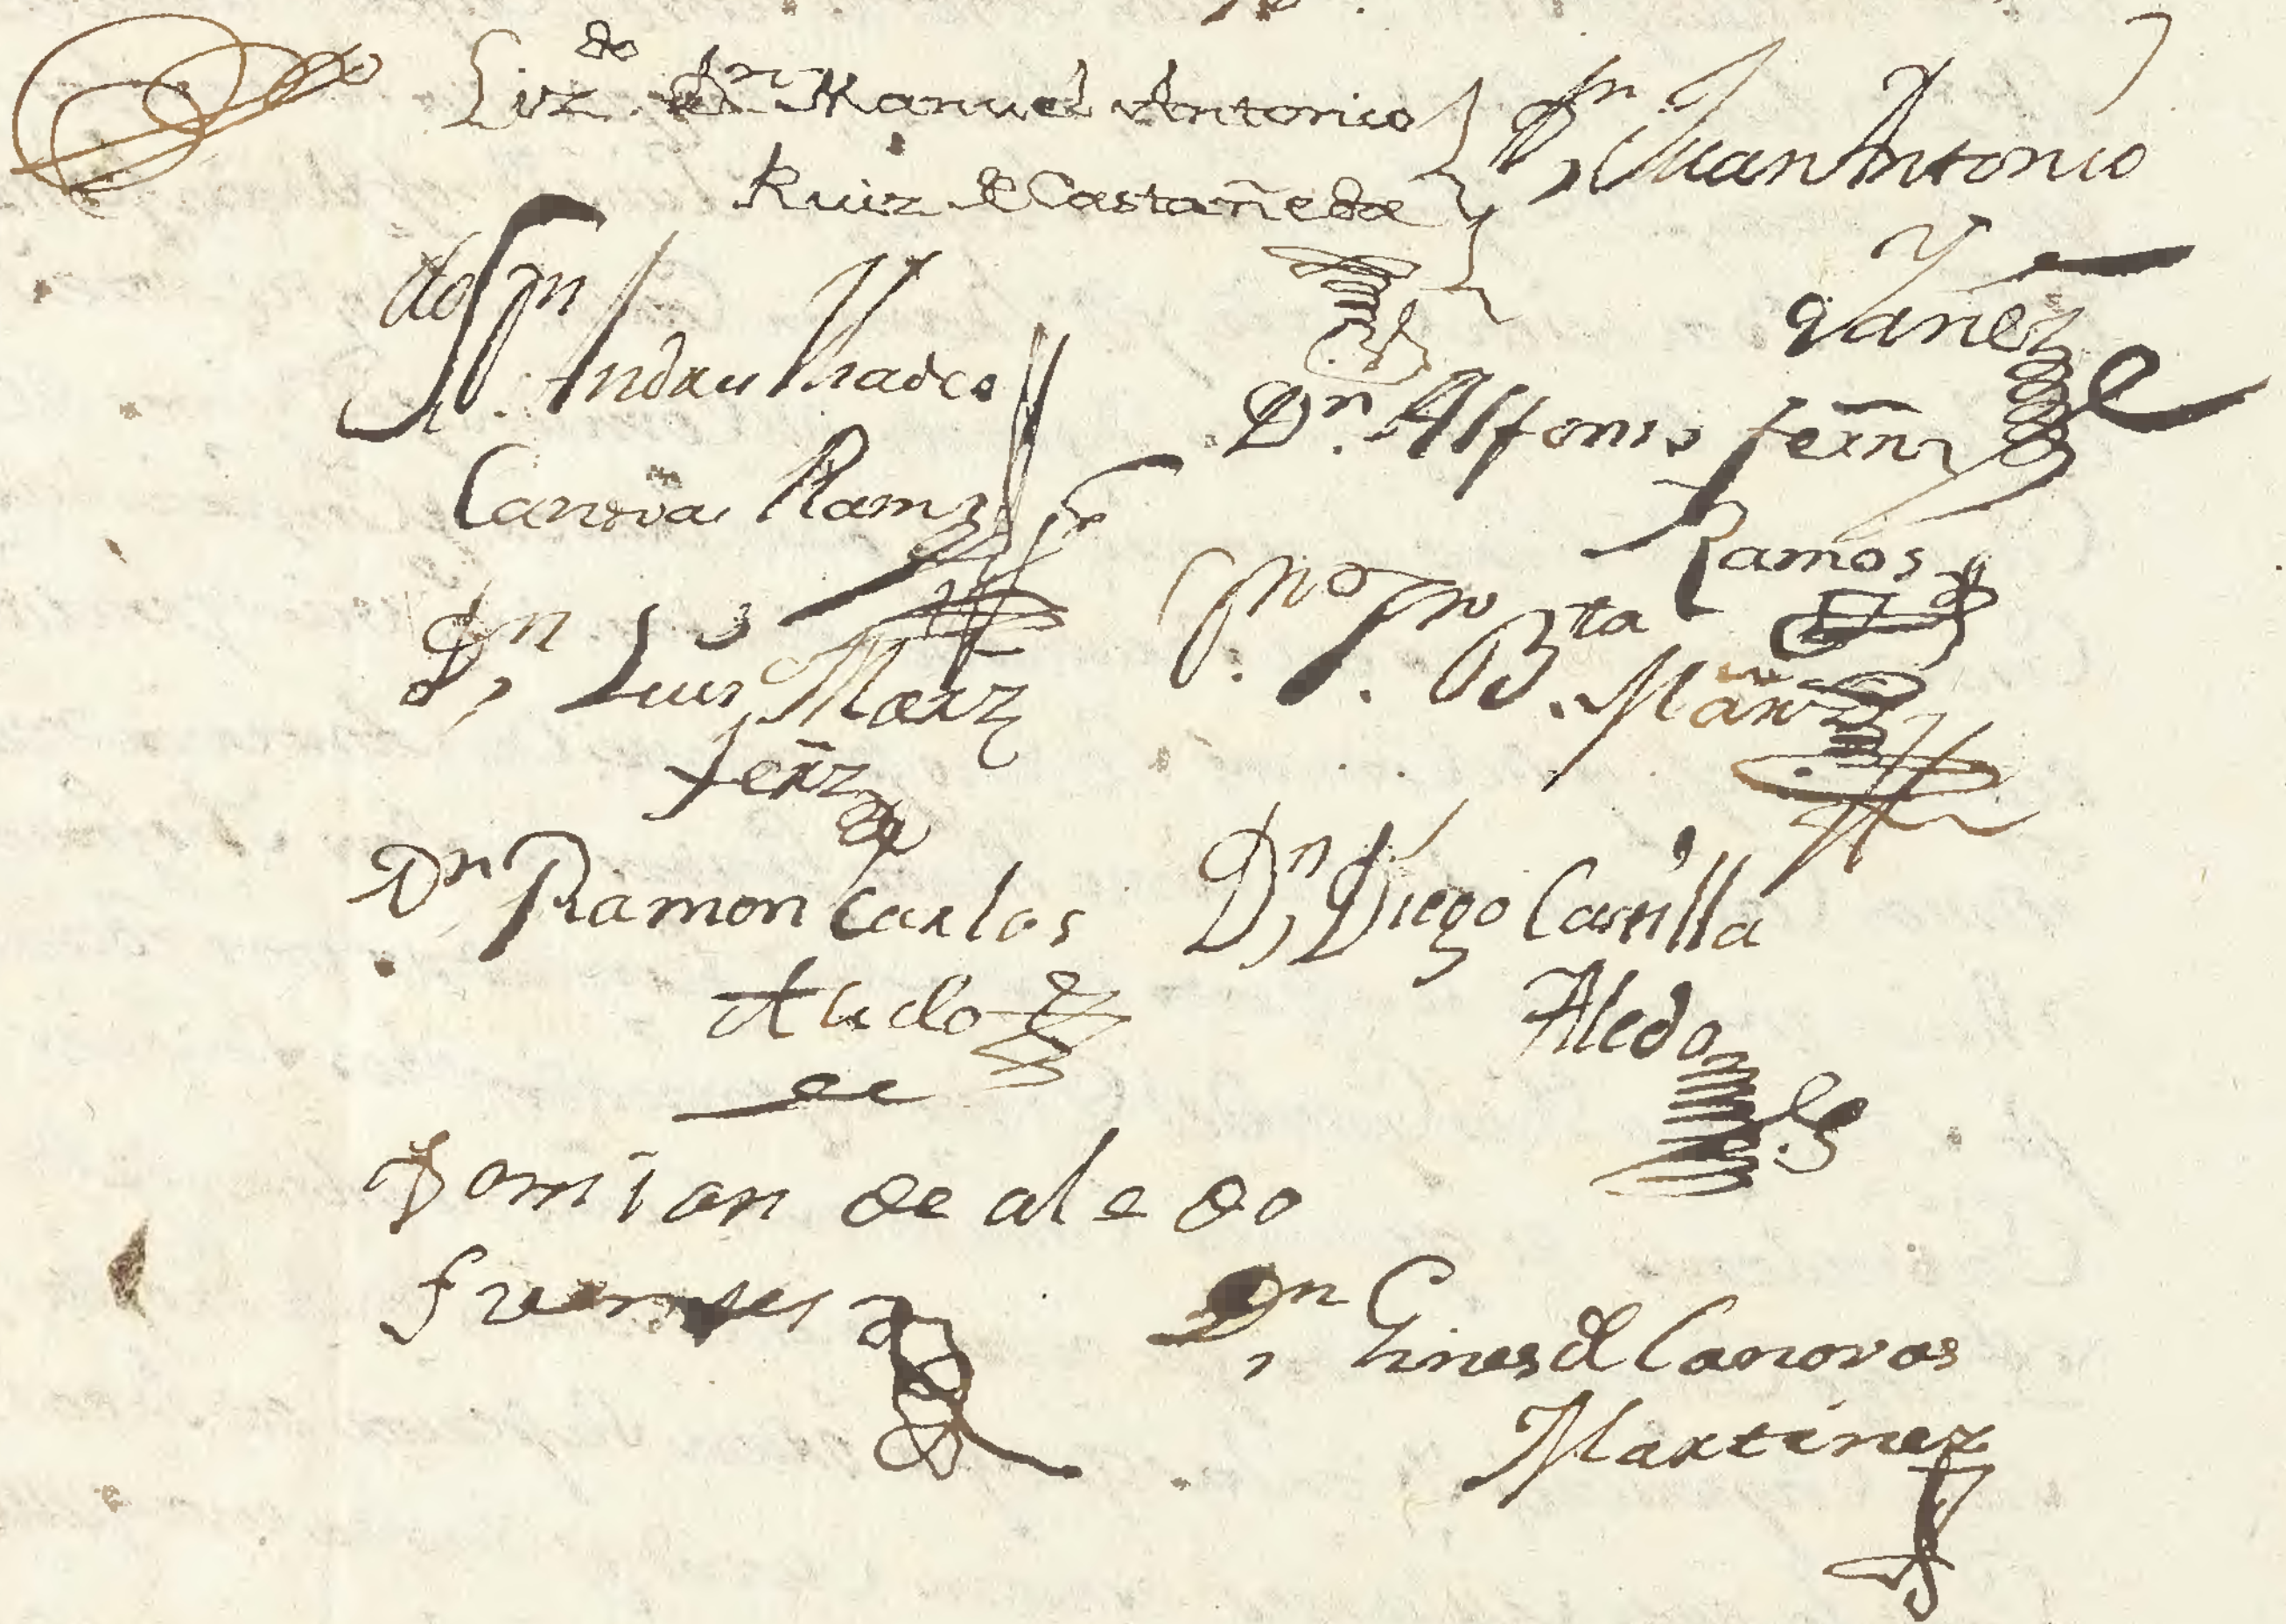 Lizdo Dn Manuel Antonio
Ruiz de Castañeda
Dn Juan Antonio
Yañez
Dn Andreu
Canova Ramz
Dn Alfonso Fern̄z
Ramos
Dn Luis Marz
Fern̄z
Jn Bta Marn̄z
Dn Ramon Carlos
Aledo
Dn Diego Canilla
Aledo
Damian de aledo
fuentes
Dn Gines de Canovas
Martinez